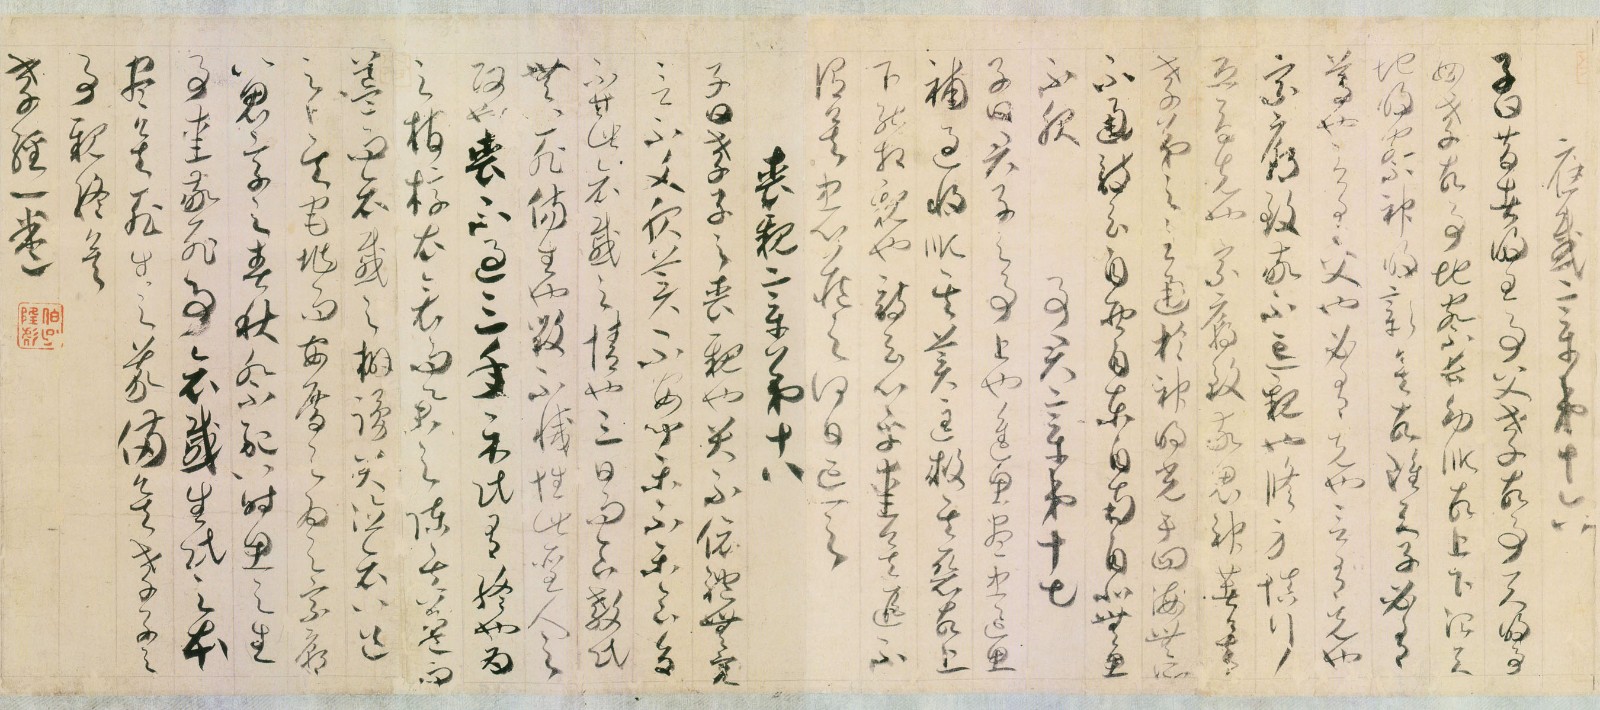 應感章第十六
子曰昔者明王事父孝故事天明事
母孝故事地察長幼順故上下治天
地明察神明彰矣故雖天子必有
尊也言有父也必有先也言有兄也
宗廟致敬不忘親也脩身慎行
恐辱先也宗廟致敬鬼神著矣
孝弟之至通於神明光于四海無所
不通詩云自西自東自南自北無思
不服 事君章第十七
子曰君子之事上也進思盡忠退思
補過將順其美匡救其惡故上
下能相親也詩云心乎愛矣遐不
謂矣忠心藏之何日忘之
喪親章第十八
子曰孝子之喪親也哭不依禮無容
言不文服美不安聞樂不樂食旨
不甘此哀慼之情也三日而食教民
無以死傷生也毀不滅性此聖人之
政也喪不過三年示民有終也為
之棺椁衣衾而舉之陳其簠簋而
哀慼之擗踊哭泣哀以送
之卜其宅兆而安厝之為之宗廟
以鬼享之春秋祭祀以時思之生
事愛敬死事哀慼生民之本
盡矣死生之義備矣孝子之
事親終矣
孝經一卷